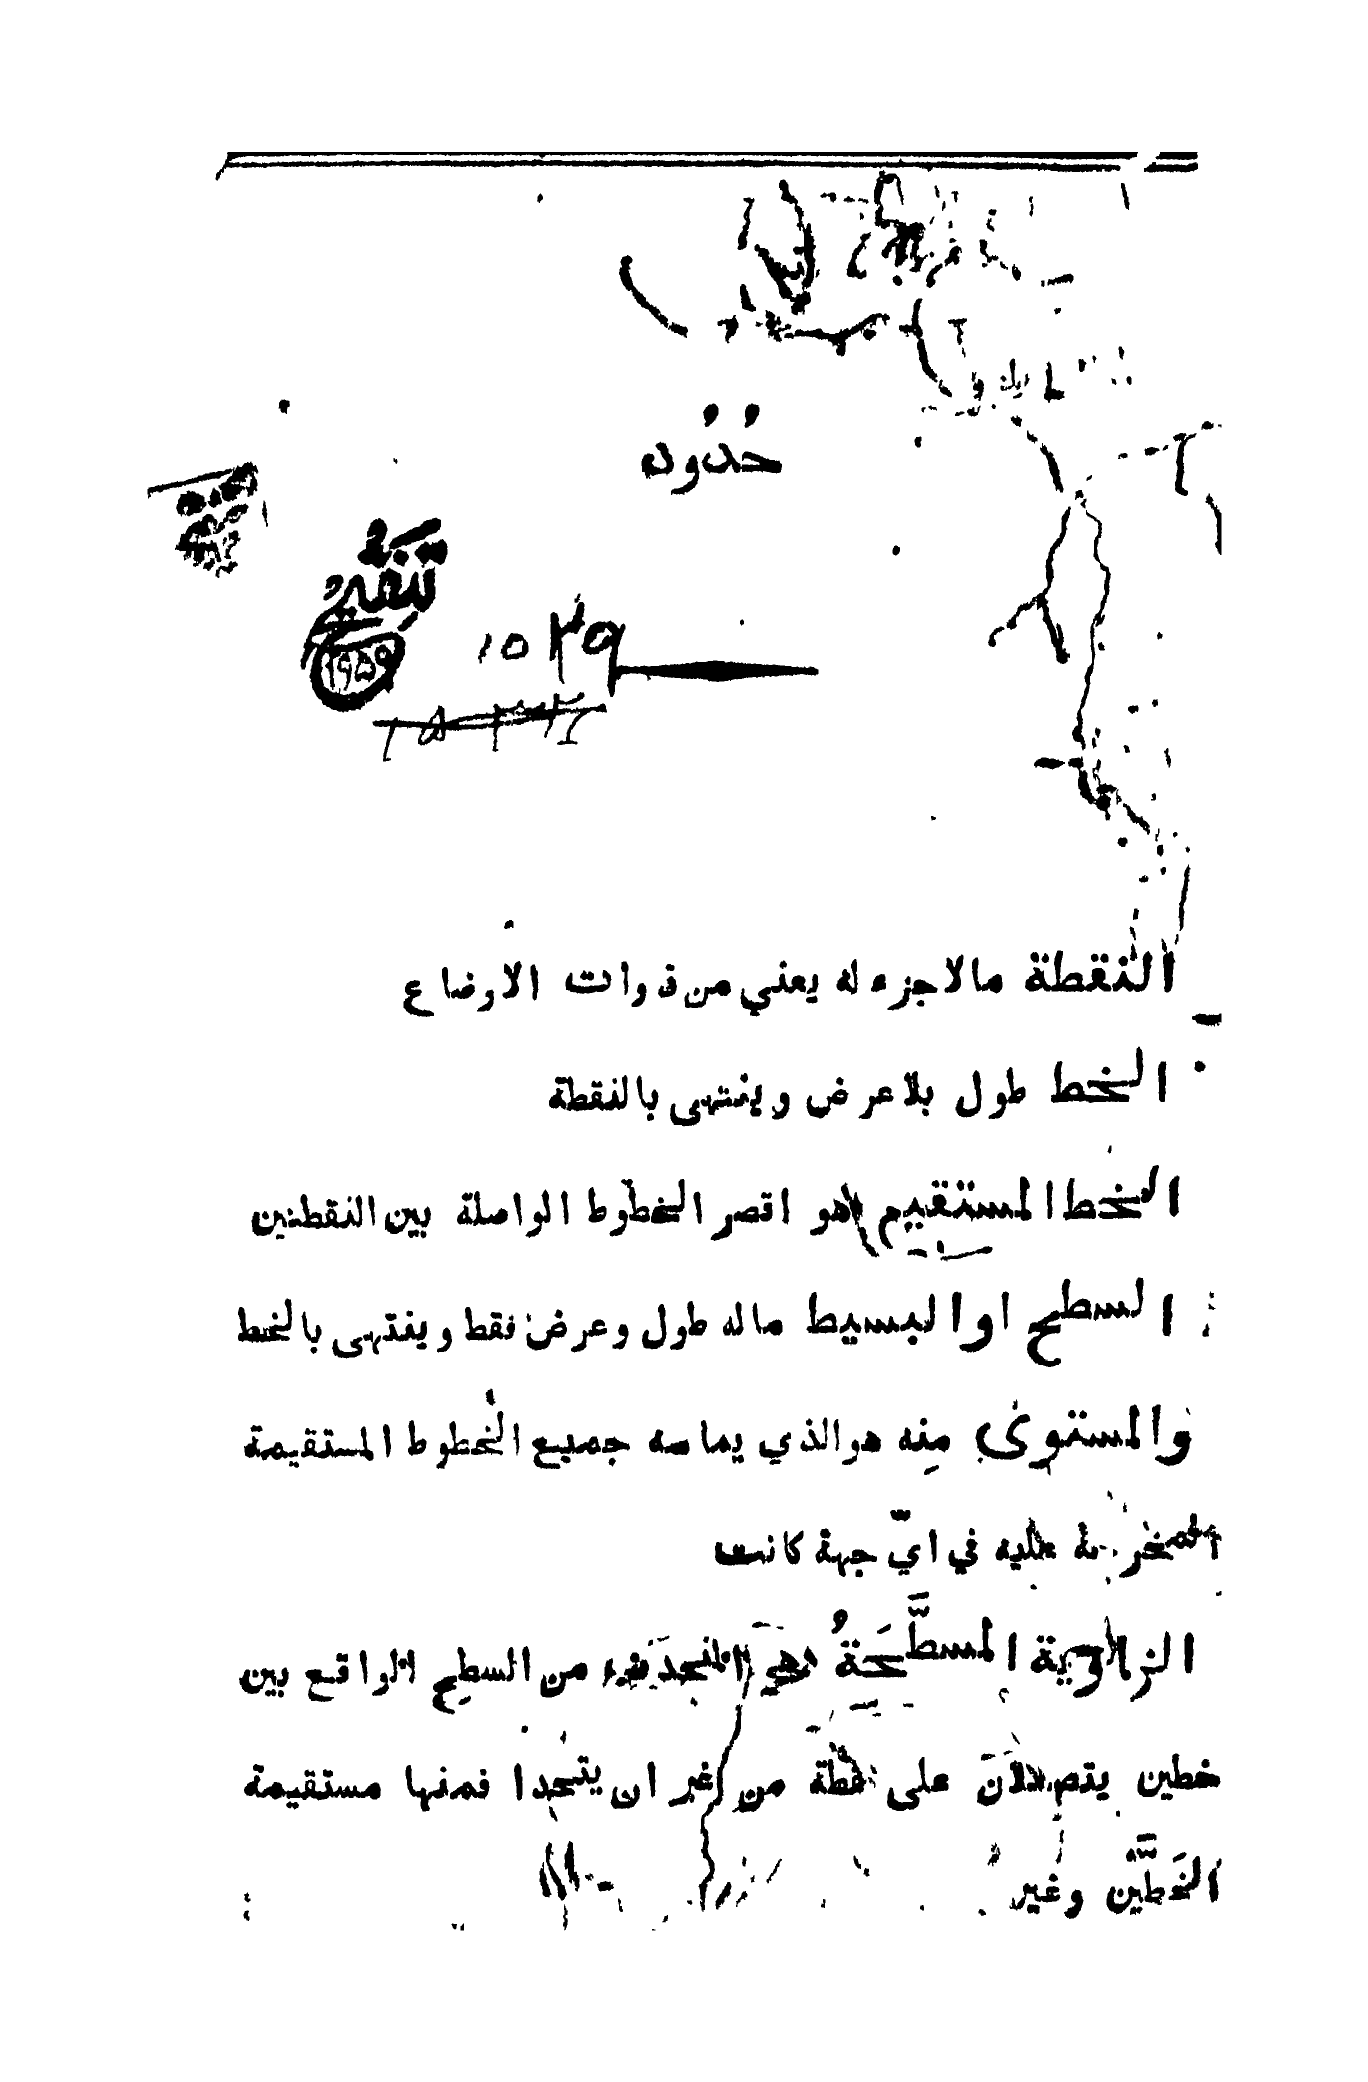 حُدُود
١٥٣٩
١٩٥٩
النقطة مالاجزء له يعني من ذوات الاوضاع
الخط طول بلا عرض وينتهى بالنقطة
الخط المستقيم هو اقصر الخطوط الواصلة بين النقطتين
السطح اوالبسيط ماله طول وعرض فقط وينتهى بالخط
والمستوى منه هوالذي يماسه جميع الخطوط المستقيمة
المخرجة عليه في ايّ جهة كانت
الزاوية المسطَّحَةُ هي المنحدب من السطح الواقع بين
خطين يتصلان على نقطة من غير ان يتحدا فمنها مستقيمة
الخَطَّين وغير